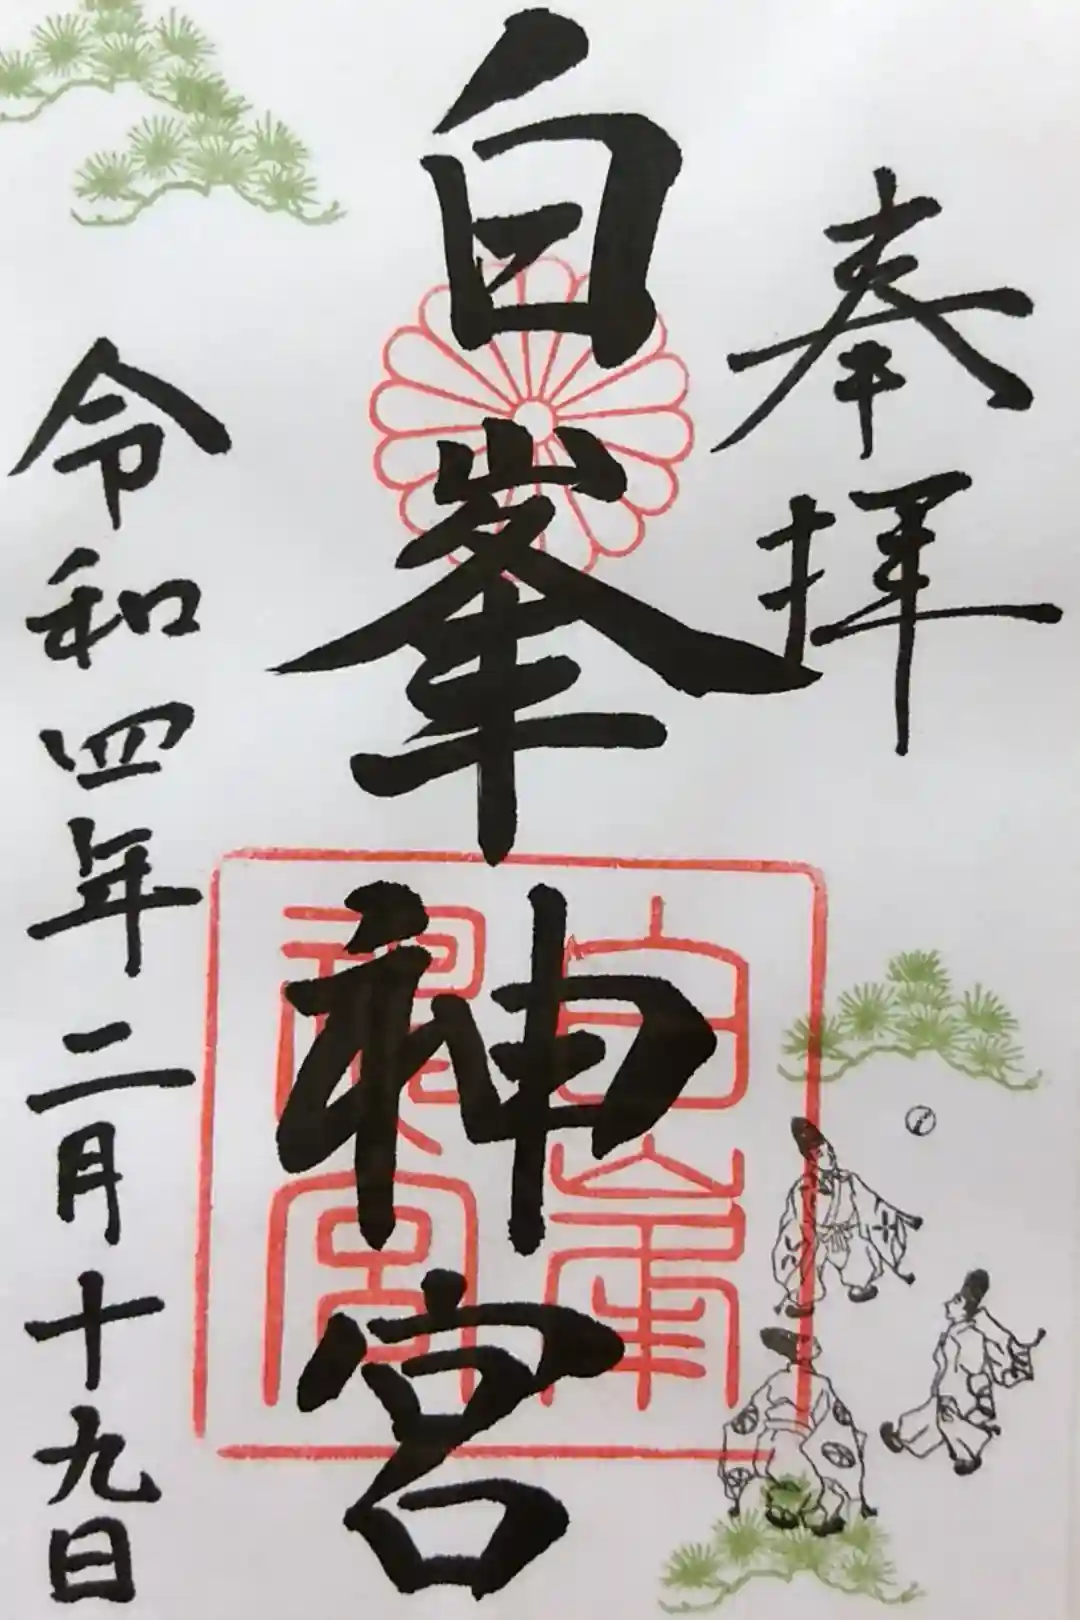 奉拝
白峯神宮
白峯神宮
令和四年二月十九日